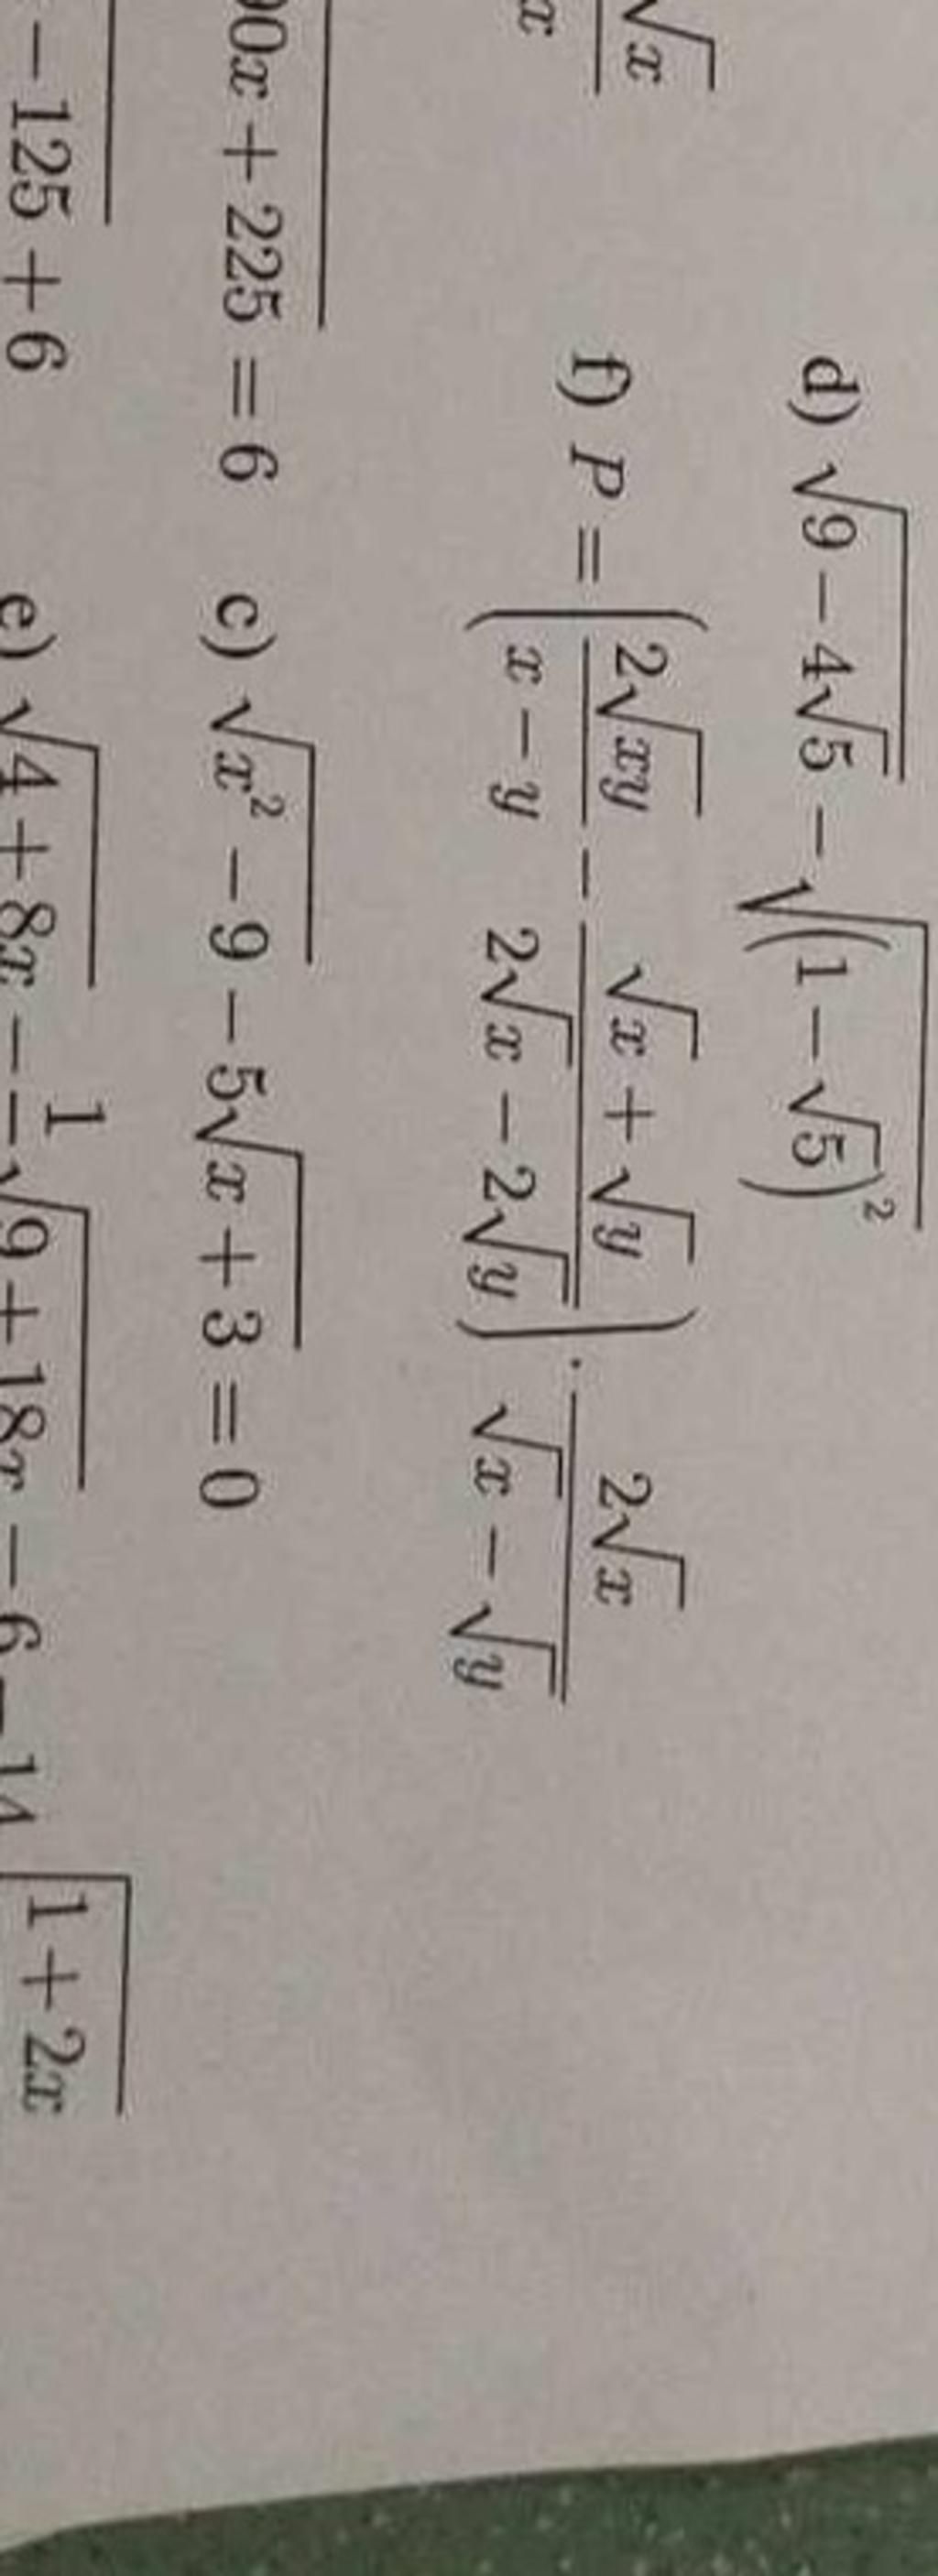 d) √(9 − 4√5) − √((1 − √5)²)
√x / x
f) P = (2√(xy) / (x − y) − (√x + √y) / (2√x − 2√y)) · 2√x / (√x − √y)
00x + 225 = 6 c) √(x² − 9) − 5√(x + 3) = 0
−125 + 6 e) √(4 + 8x) − 1 √(9 + 18x) − 6 − 14 √(1 + 2x)